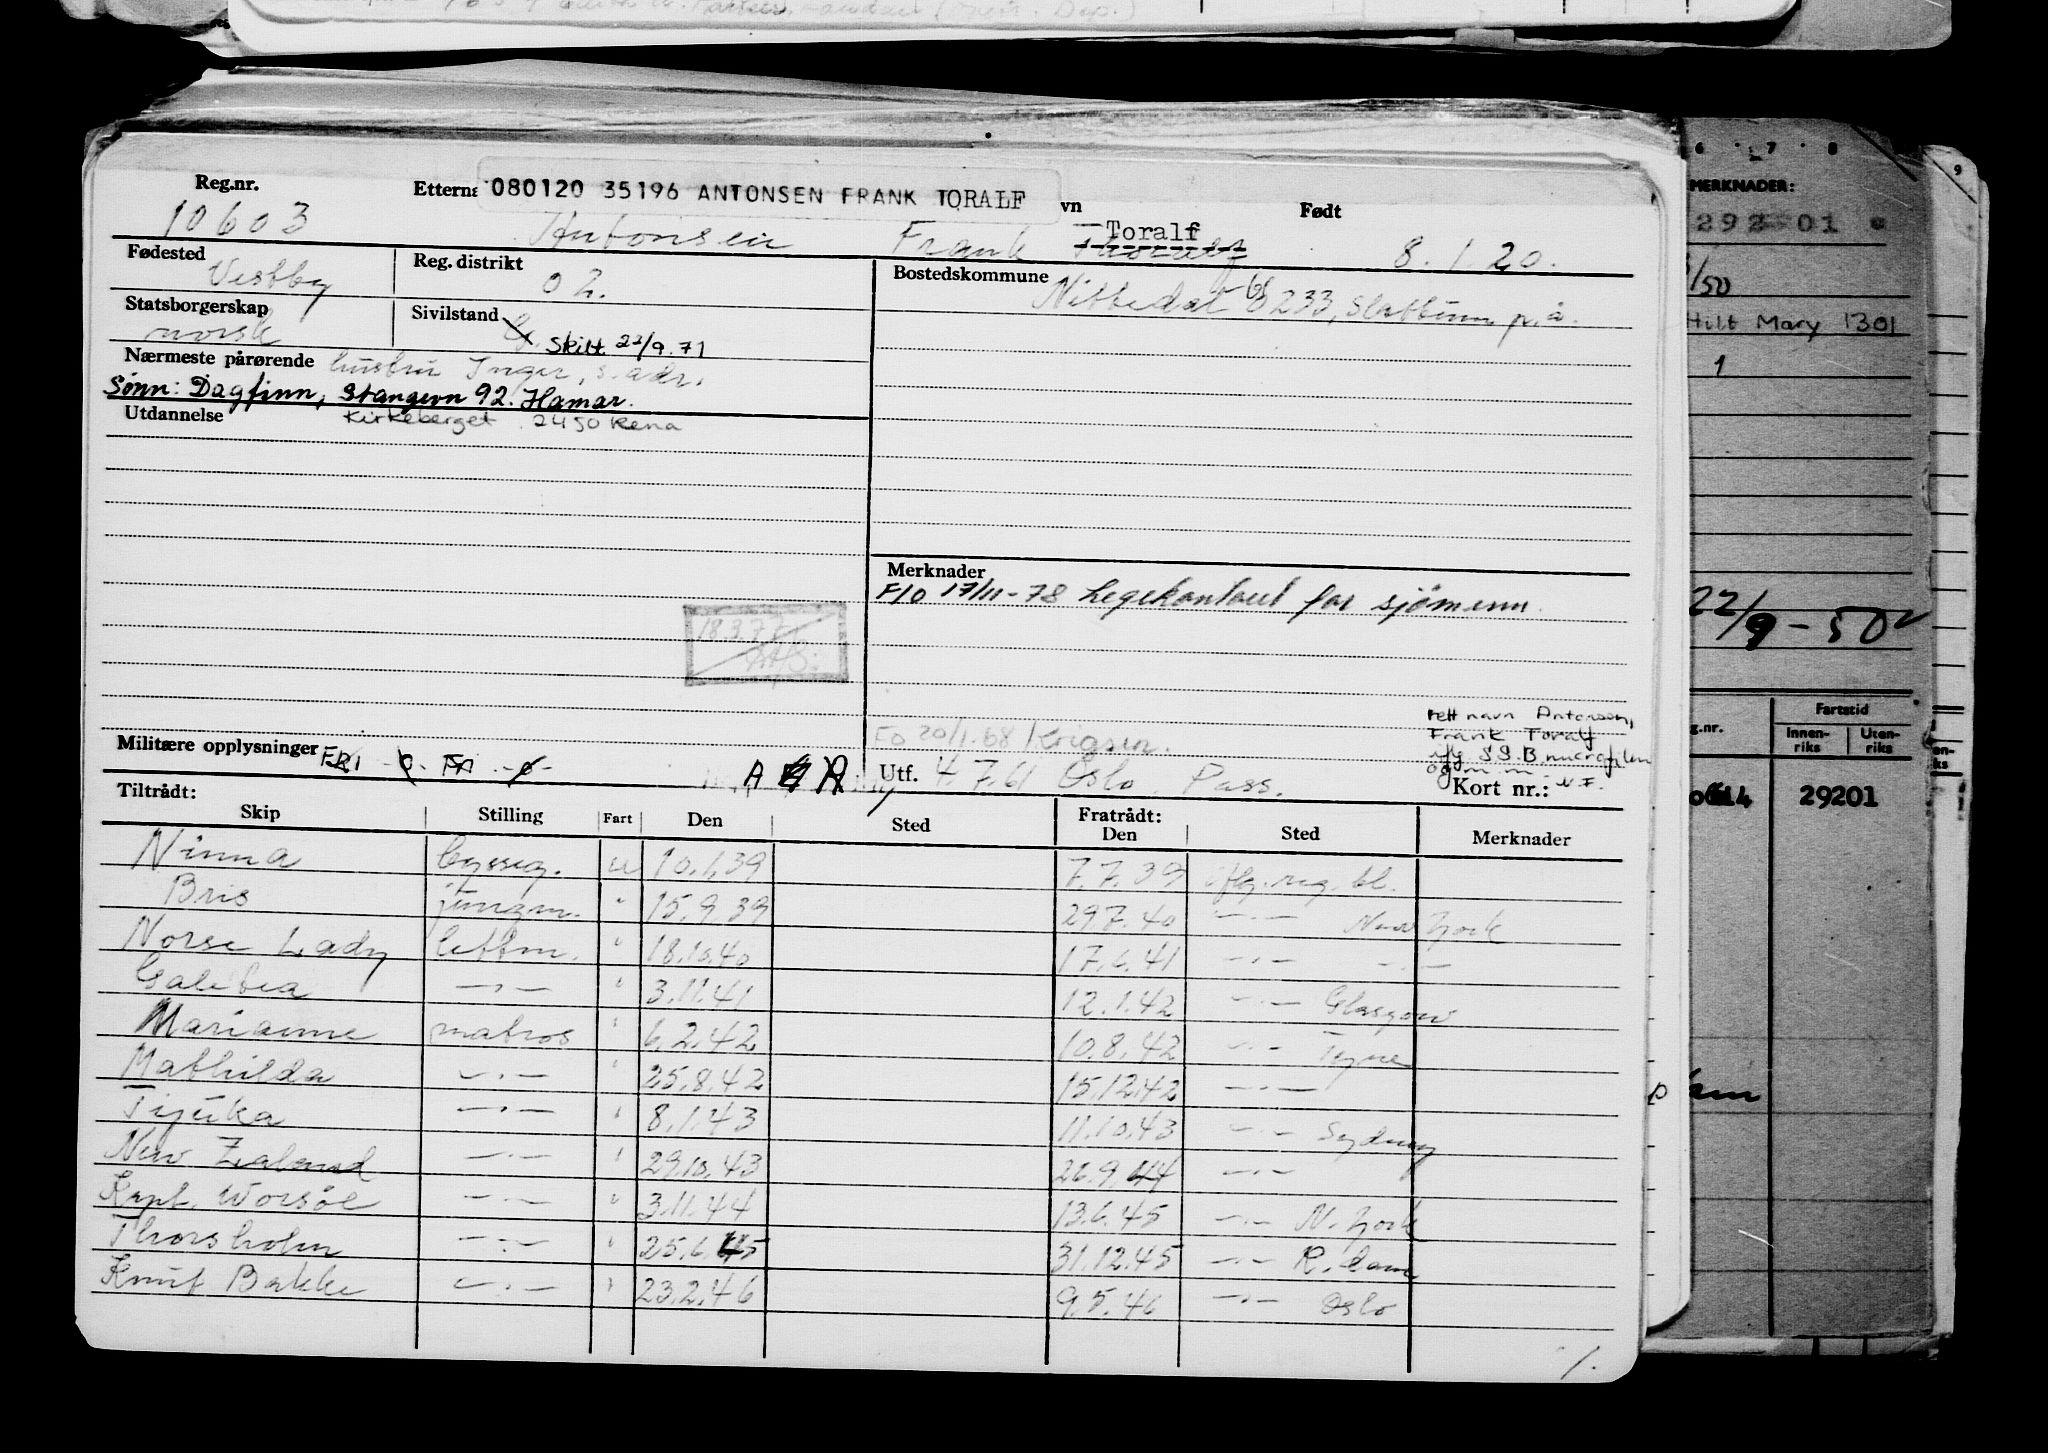 Reg.nr. Etterna 080120 35196 ANTONSEN FRANK TORALF vn Født
10603 Antonsen Frank Toralf 8.1.20.
Fødested Vestby Reg. distrikt 02. Bostedskommune Nittedal
233, Slattum p.å.
Statsborgerskap norsk Sivilstand G. Skilt 23/9.71
Nærmeste pårørende hustru Inger, s. adr.
Sønn: Dagfinn, Stangevn 92. Hamar.
Utdannelse Kirkeberget 2450 Rena
Merknader
F/O 17/11-78 Legekontoret for sjömenn.
18.3.77
FO 20/1.68 Krigsm.
rett navn Antonsen,
Frank Toralf
iflg S.S.B microfilm
og m.m. N.F.
Militære opplysninger
Utf. 4.7.61 Oslo. Pass. Kort nr.:
Tiltrådt: Fratrådt:
Skip Stilling Fart Den Sted Den Sted Merknader
Ninna bysseg. u 10.1.39 7.7.39 iflg. reg. bl.
Bris jungm. " 15.9.39 29.7.40 -"- New York
Norse Lady lettm. " 18.10.40 17.6.41 -"- -"-
Galitea -"- " 3.11.41 12.1.42 -"- Glasgow
Marianne matros " 6.2.42 10.8.42 -"- Tyne
Mathilda -"- " 25.8.42 15.12.42 -"-
Tijuka -"- " 8.1.43 11.10.43 -"- Sydney
New Zealand -"- " 29.10.43 26.9.44 -"-
Kapt. Worsöe -"- " 3.11.44 13.6.45 -"- N. York
Thorsholm -"- " 25.6.45 31.12.45 -"- R.dam
Knut Bakke -"- " 23.2.46 9.5.46 -"- Oslo
1.
6 7 8 9
MERKNADER:
292 01
/50
Hilt Mary 1301
1
22/9-50
g.nr. Fartstid
Innenriks Utenriks
29201